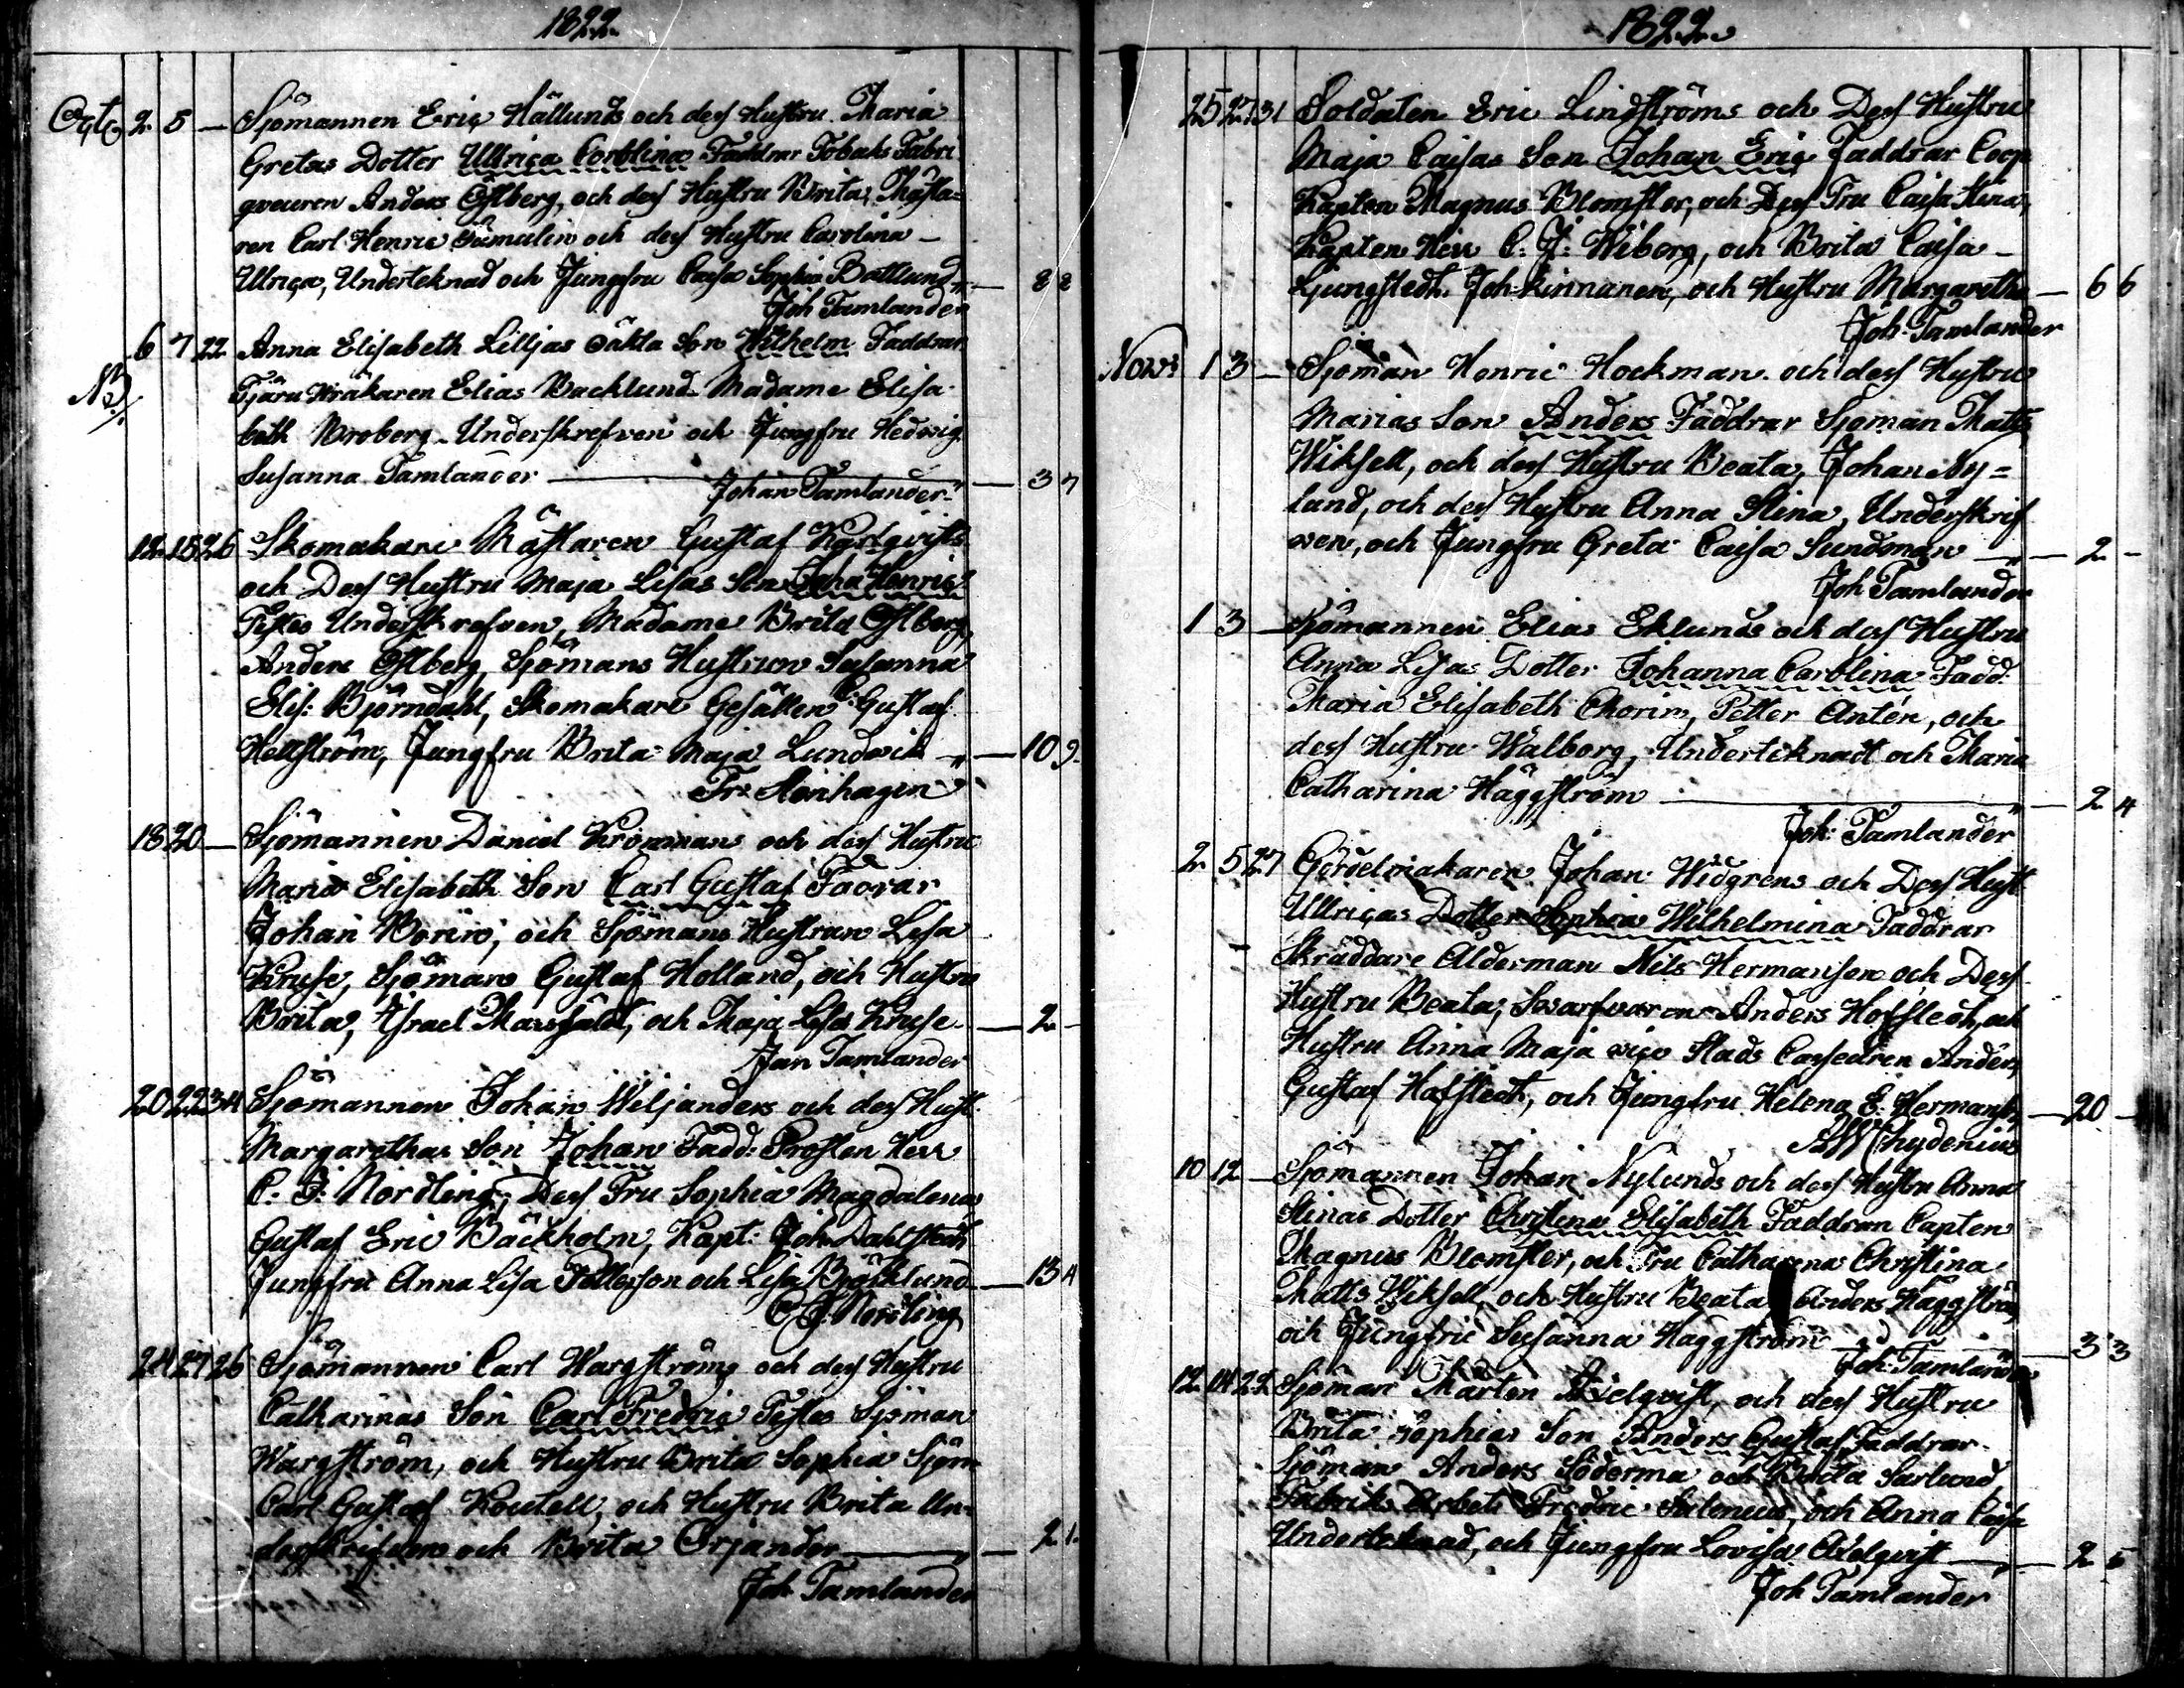 1822
Octo 2 5 — Sjömannen Eric Hällunds och dess Hustru Maria
Gretas Dotter Ullrica Carolina Faddrar Tobaks Fabri
queuren Anders Östberg, och dess Hustru Brita, Mästa=
ren Carl Henric och dess Hustru Carolina —
Ulrica, Underteknad och Jungfru Caisa Sophia Båttlund — 8 2
Joh Tamlander
6 7 22 Anna Elisabeth Lilljas oäkta Son Wilhelm Faddrar
NB Tjäru Wräkaren Elias Backlund Madame Elisa
beth Broberg Underskrefven och Jungfru Hedvig
Susanna Tamlander — 3 7
Johan Tamlander
12 15 26 Skomakare Mästaren Gustaf Karlqvists
och Dess Hustru Maja Lisas Son Joha Henric
Testes Underskrefven, Madame Brita Östberg,
Anders Östberg, Sjömans Hustrun Susanna
Elis: Björndahl, Skomakare Gesällen Gustaf
Hellström, Jungfru Brita Maja Lundvik — 10 9
Fr: Stenhagen
18 20 — Sjömannen Daniel Kronmans och dess Hustru
Maria Elisabeth Son Carl Gustaf Fadrar
Johan Borin, och Sjömans Hustrun Lisa
Kruse, Sjöman Gustaf Holland, och Hustru
Brita, Israel och Maja Lisa Kruse — 2 -
Jan Tamlander
20 22 34 Sjömannen Johan Wiljanders och dess Hust.
Margarethas Son Johan Fadd: Prosten Herr
C. J. Nordling, Dess Fru Sophia Magdalena
Gustaf Eric Bäckholm, Kapt: Joh Dahlstedt
Jungfru Anna Lisa Pettersson och Lisa Björklund — 13 4
C. J. Nordling
24 27 26 Sjömannen Carl Wargströms och dess Hustru
Catharinas Son Carl Fredric Testes Sjöman
Wargström, och Hustru Brita Sophia Sjöm
Carl Gustaf och Hustru Brita Un-
derskrifven och Brita Örjander — 2 1
Joh Tamlander
1822
25 27 31 Soldaten Eric Lindströms och Dess Hustru
Maja Caisas Son Johan Eric Faddrar Coop
Kapten Magnus Blomster, och Dess Fru Caisa Stina,
Kapten Herr C. J. Wiberg, och Brita Caisa —
Ljungstedt Joh Kinnanen, och Hustru Margaretha — 6 6
Joh: Tamlander
Novr 1 3 — Sjöman Henric Hockman och dess Hustru
Marias Son Anders Faddrar Sjöman Matts
Wiksell, och dess Hustru Beata, Johan Ny=
lund, och dess Hustru Anna Stina, Underskrif
wen, och Jungfru Greta Caisa Sundman — 2 -
Joh Tamlander
1 3 — Sjömannen Elias Eklunds och dess Hustru
Anna Lisas Dotter Johanna Carolina Fadd:
Maria Elisabeth Chorin, Petter Antén, och
dess Hustru Walborg, Underteknadt och Maria
Catharina Häggström — 2 4
Joh: Tamlander
2 5 27 Gördelmakaren Johan Widgrens och Dess Hust
Ullricas Dotter Sophia Wilhelmina Faddrar
Skräddare Ålderman Nils Hermanson och Dess
Hustru Beata, Svarfvaren Anders Hofstedt, och
Hustru Anna Maja vice Stads Casseuren Anders
Gustaf Hofstedt, och Jungfru Helena E. Hermanson — 20 —
AW Chydenius
10 12 — Sjömannen Johan Nylunds och dess Hustru Anna
Stinas Dotter Christina Elisabeth Faddran Capten
Magnus Blomster, och Fru Catharina Christina
Matts Wiksell och Hustru Beata Anders Häggström
och Jungfru Susanna Häggström — 3 3
Joh: Tamlander
12 14 22 Sjöman Mårten Axelqvist, och dess Hustru
Brita Sophias Son Anders Gustaf Faddrar
Sjöman Anders Söderma och Brita Sarlund
Fabriks Arbets Fredric och Anna Caisa
Underteknad, och Jungfru Lovisa Axelqvist — 2 5
Joh Tamlander